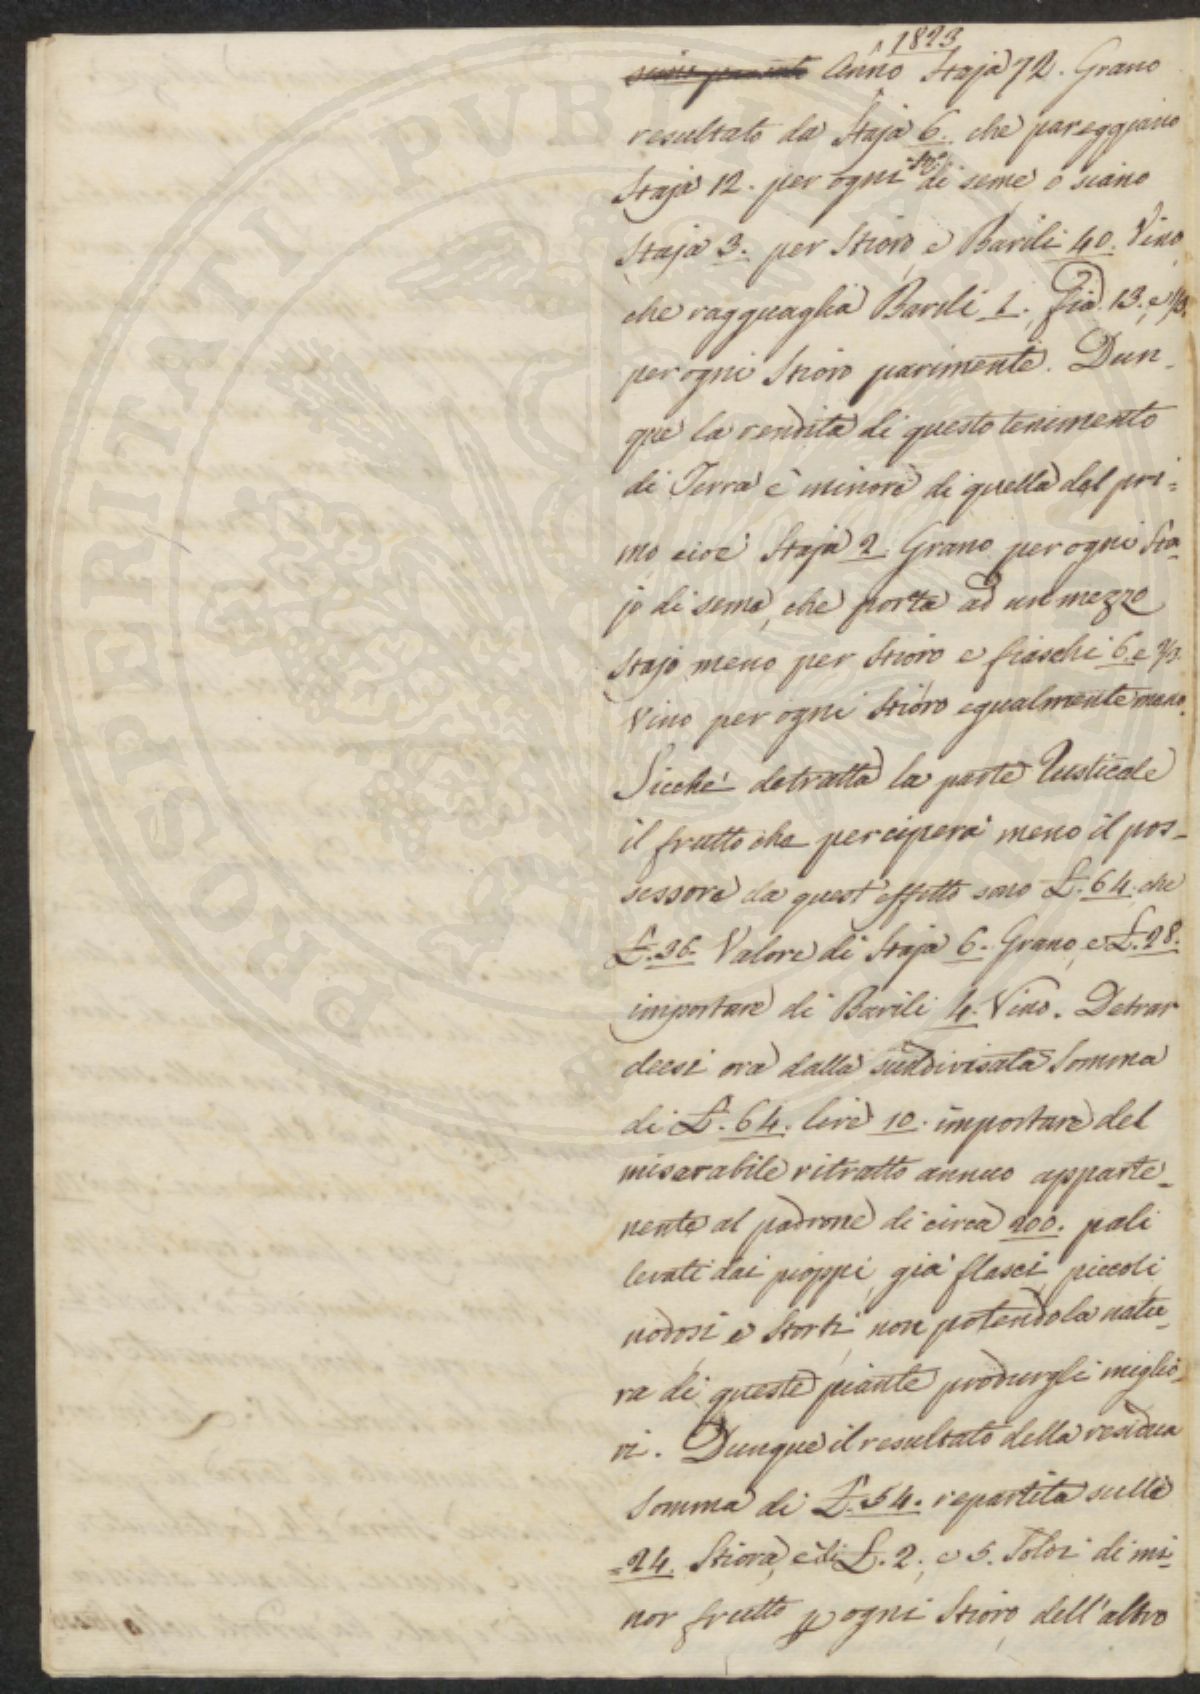 1823
Anno Staja 72. Grano
resultato da Staja 6. che pareggiano
Staja 12. per ogni Sto. di seme, o siano
Staja 3. per Stioro, e Barili 40. Vino
che ragguaglia Barili 1. fia. 13. e 1/3.
per ogni Stioro parimente. Dun-
que la rendita di questo tenimento
di Terra è minore di quella del pri=
mo cioè Staja 2. Grano per ogni Sta-
jo di seme, che porta ad un mezzo
Stajo meno per Stioro e fiaschi 6. e 2/3.
Vino per ogni Stioro egualmente meno.
Sicchè detratta la parte Rusticale
il frutto che perciperà meno il pos-
sessore da quest'effetto sono £. 64. che
£. 36. Valore di Staja 6. Grano, e £. 28.
importare di Barili 4. Vino. Detrar
deesi ora dalla suddivisata Somma
di £. 64. lire 10. importare del
miserabile ritratto annuo apparte-
nente al padrone di circa 200. pali
levati dai pioppi, già flasci, piccoli
nodosi e Storti, non potendo la natu-
ra di queste piante produrgli miglio-
ri. Dunque il resultato della residua
Somma di £. 54. repartita sulle
=24. Stiora, è di £. 2, e 5. Soldi di mi-
nor frutto p ogni Stioro, dell'altro
PROSPERITATI PUBLICAE